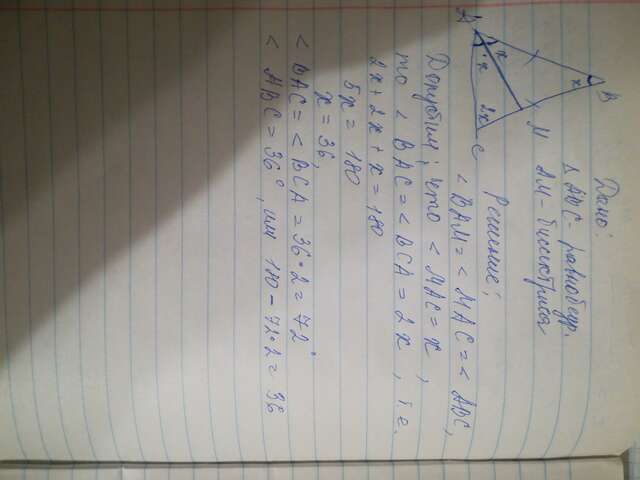 Дано:
Δ ABC - равнобедр.
AM - биссектриса
A
B
C
M
x
x
x
2x
Решение:
< BAM = < MAC = < ABC,
Допустим, что < MAC = x,
то < BAC = < BCA = 2x, т.е.
2x + 2x + x = 180
5x = 180
x = 36,
< BAC = < BCA = 36·2 = 72°
< ABC = 36°, или 180 - 72·2 = 36